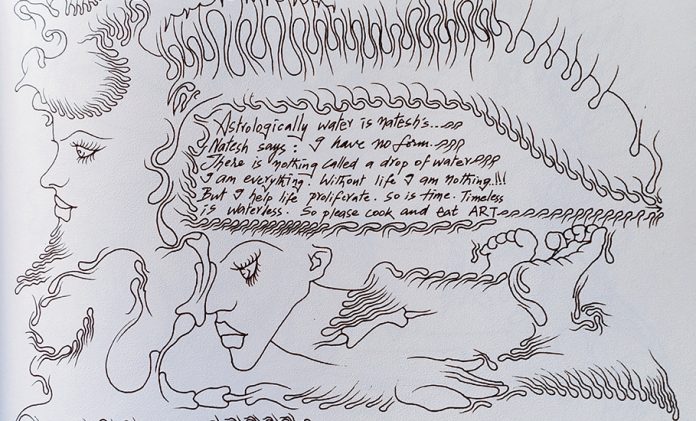 Astrologically water is natesh's...
Natesh says: I have no form.
There is nothing called a drop of water
I am everything. Without life I am nothing!!!
But I help life proliferate. So is time. Timeless
is waterless. So please cook and eat ART